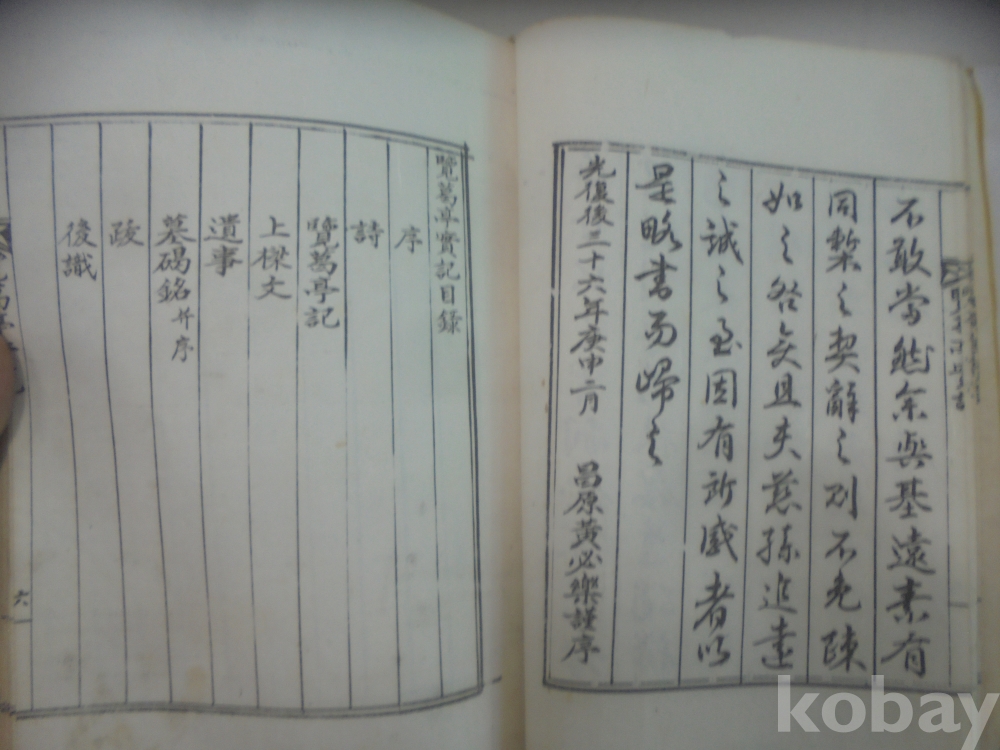 不敢當然余與基遠素有
同槧之契辭之則不免疎
如之咎矣且夫慈孫追遠
之誠之至固有所感者以
是略書而歸之
光復後三十六年庚申二月 昌原黃必樂謹序
覽葛亭實記目錄
序
詩
覽葛亭記
上樑文
遺事
墓碣銘 幷序
跋
後識
六
kobay